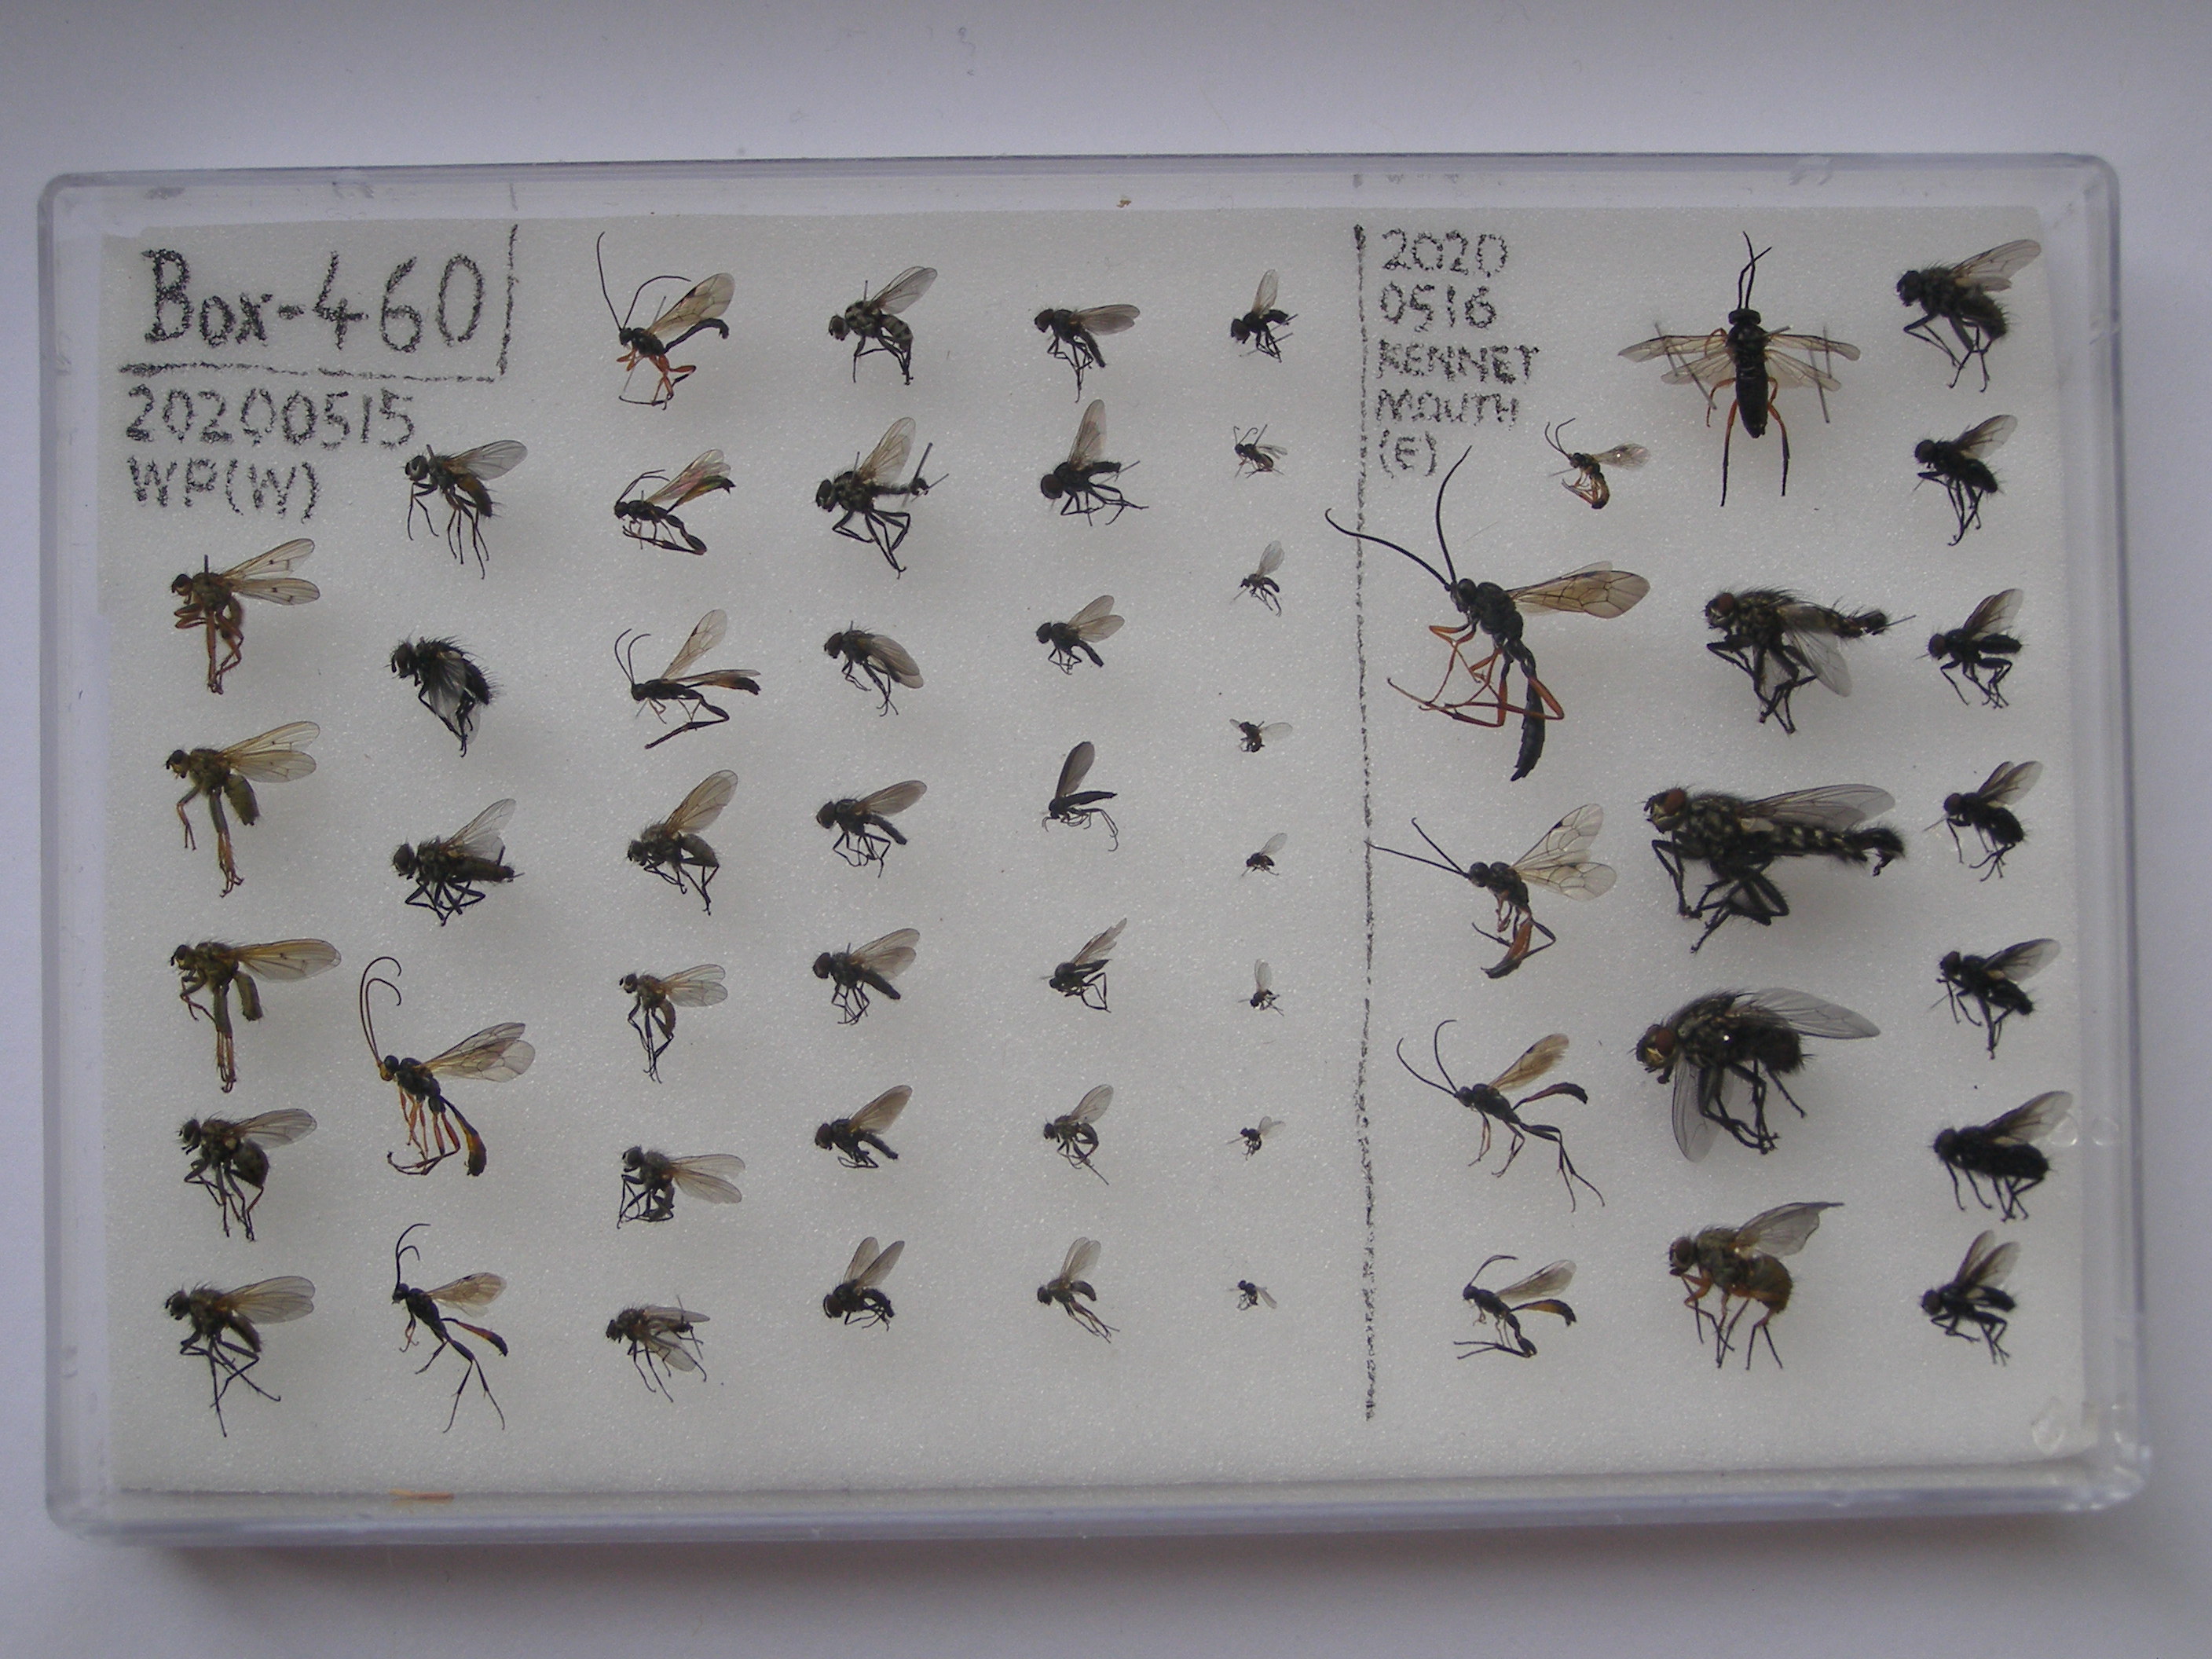 Box-460
20200515
WP(W)
2020
0516
KENNET
MOUTH
(E)